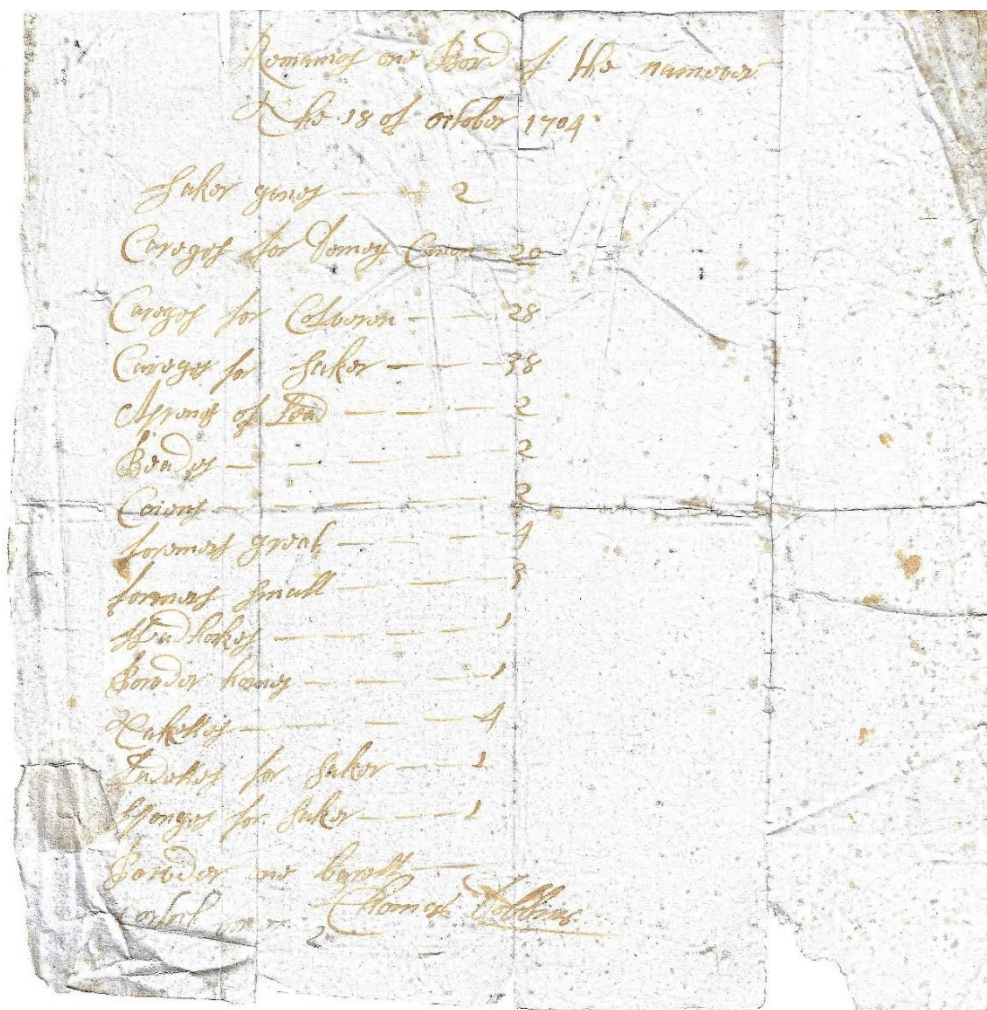 Remaines one Bord of the namever
The 18 of october 1704
saker gones — — 2
Careges for Demey Canon — 20
Careges for Colveren — — 28
Careges for saker — — — 38
Aprens of Lead — — — 2
Beades — — — — — 2
Coiens — — — — — 2
foremers great — — — 4
formers small — — — 3
— — — — 1
Powder hornes — — — 1
— — — — 4
Ladelles for saker — — 1
sponges for saker — — 1
Powder one barell —
Thomas
2